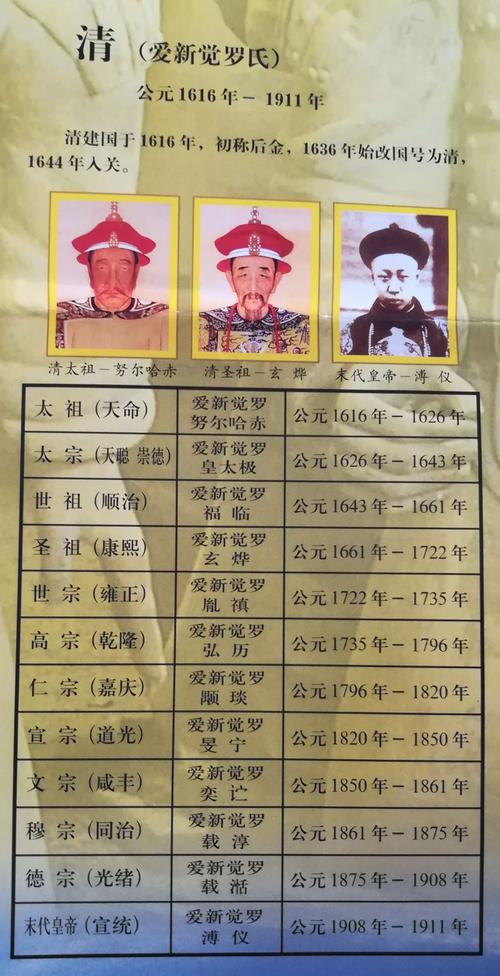 清 (爱新觉罗氏)
公元1616年－1911年
清建国于1616年，初称后金，1636年始改国号为清，
1644年入关。
清太祖－努尔哈赤
清圣祖－玄 烨
末代皇帝－溥 仪
太 祖（天命）
爱新觉罗
努尔哈赤
公元1616年－1626年
太 宗（天聪 崇德）
爱新觉罗
皇太极
公元1626年－1643年
世 祖（顺治）
爱新觉罗
福 临
公元1643年－1661年
圣 祖（康熙）
爱新觉罗
玄 烨
公元1661年－1722年
世 宗（雍正）
爱新觉罗
胤 禛
公元1722年－1735年
高 宗（乾隆）
爱新觉罗
弘 历
公元1735年－1796年
仁 宗（嘉庆）
爱新觉罗
颙 琰
公元1796年－1820年
宣 宗（道光）
爱新觉罗
旻 宁
公元1820年－1850年
文 宗（咸丰）
爱新觉罗
奕 𬣞
公元1850年－1861年
穆 宗（同治）
爱新觉罗
载 淳
公元1861年－1875年
德 宗（光绪）
爱新觉罗
载 湉
公元1875年－1908年
末代皇帝（宣统）
爱新觉罗
溥 仪
公元1908年－1911年